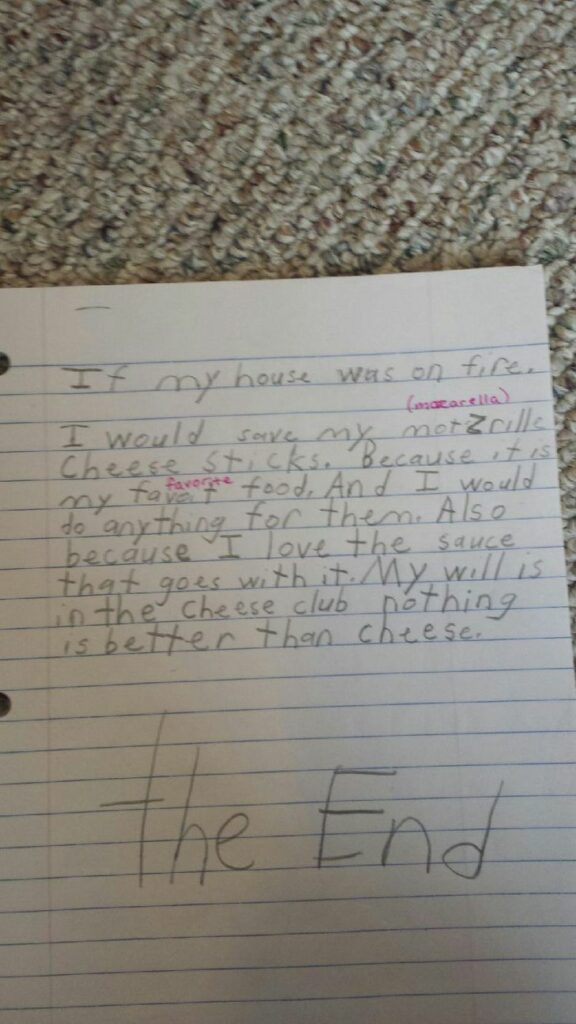 If my house was on fire.
(mozarella)
I would save my motzrille
Cheese sticks. Because it is
favorite
my favoit food. And I would
do anything for them. Also
because I love the sauce
that goes with it. My will is
in the cheese club nothing
is better than cheese.
The End